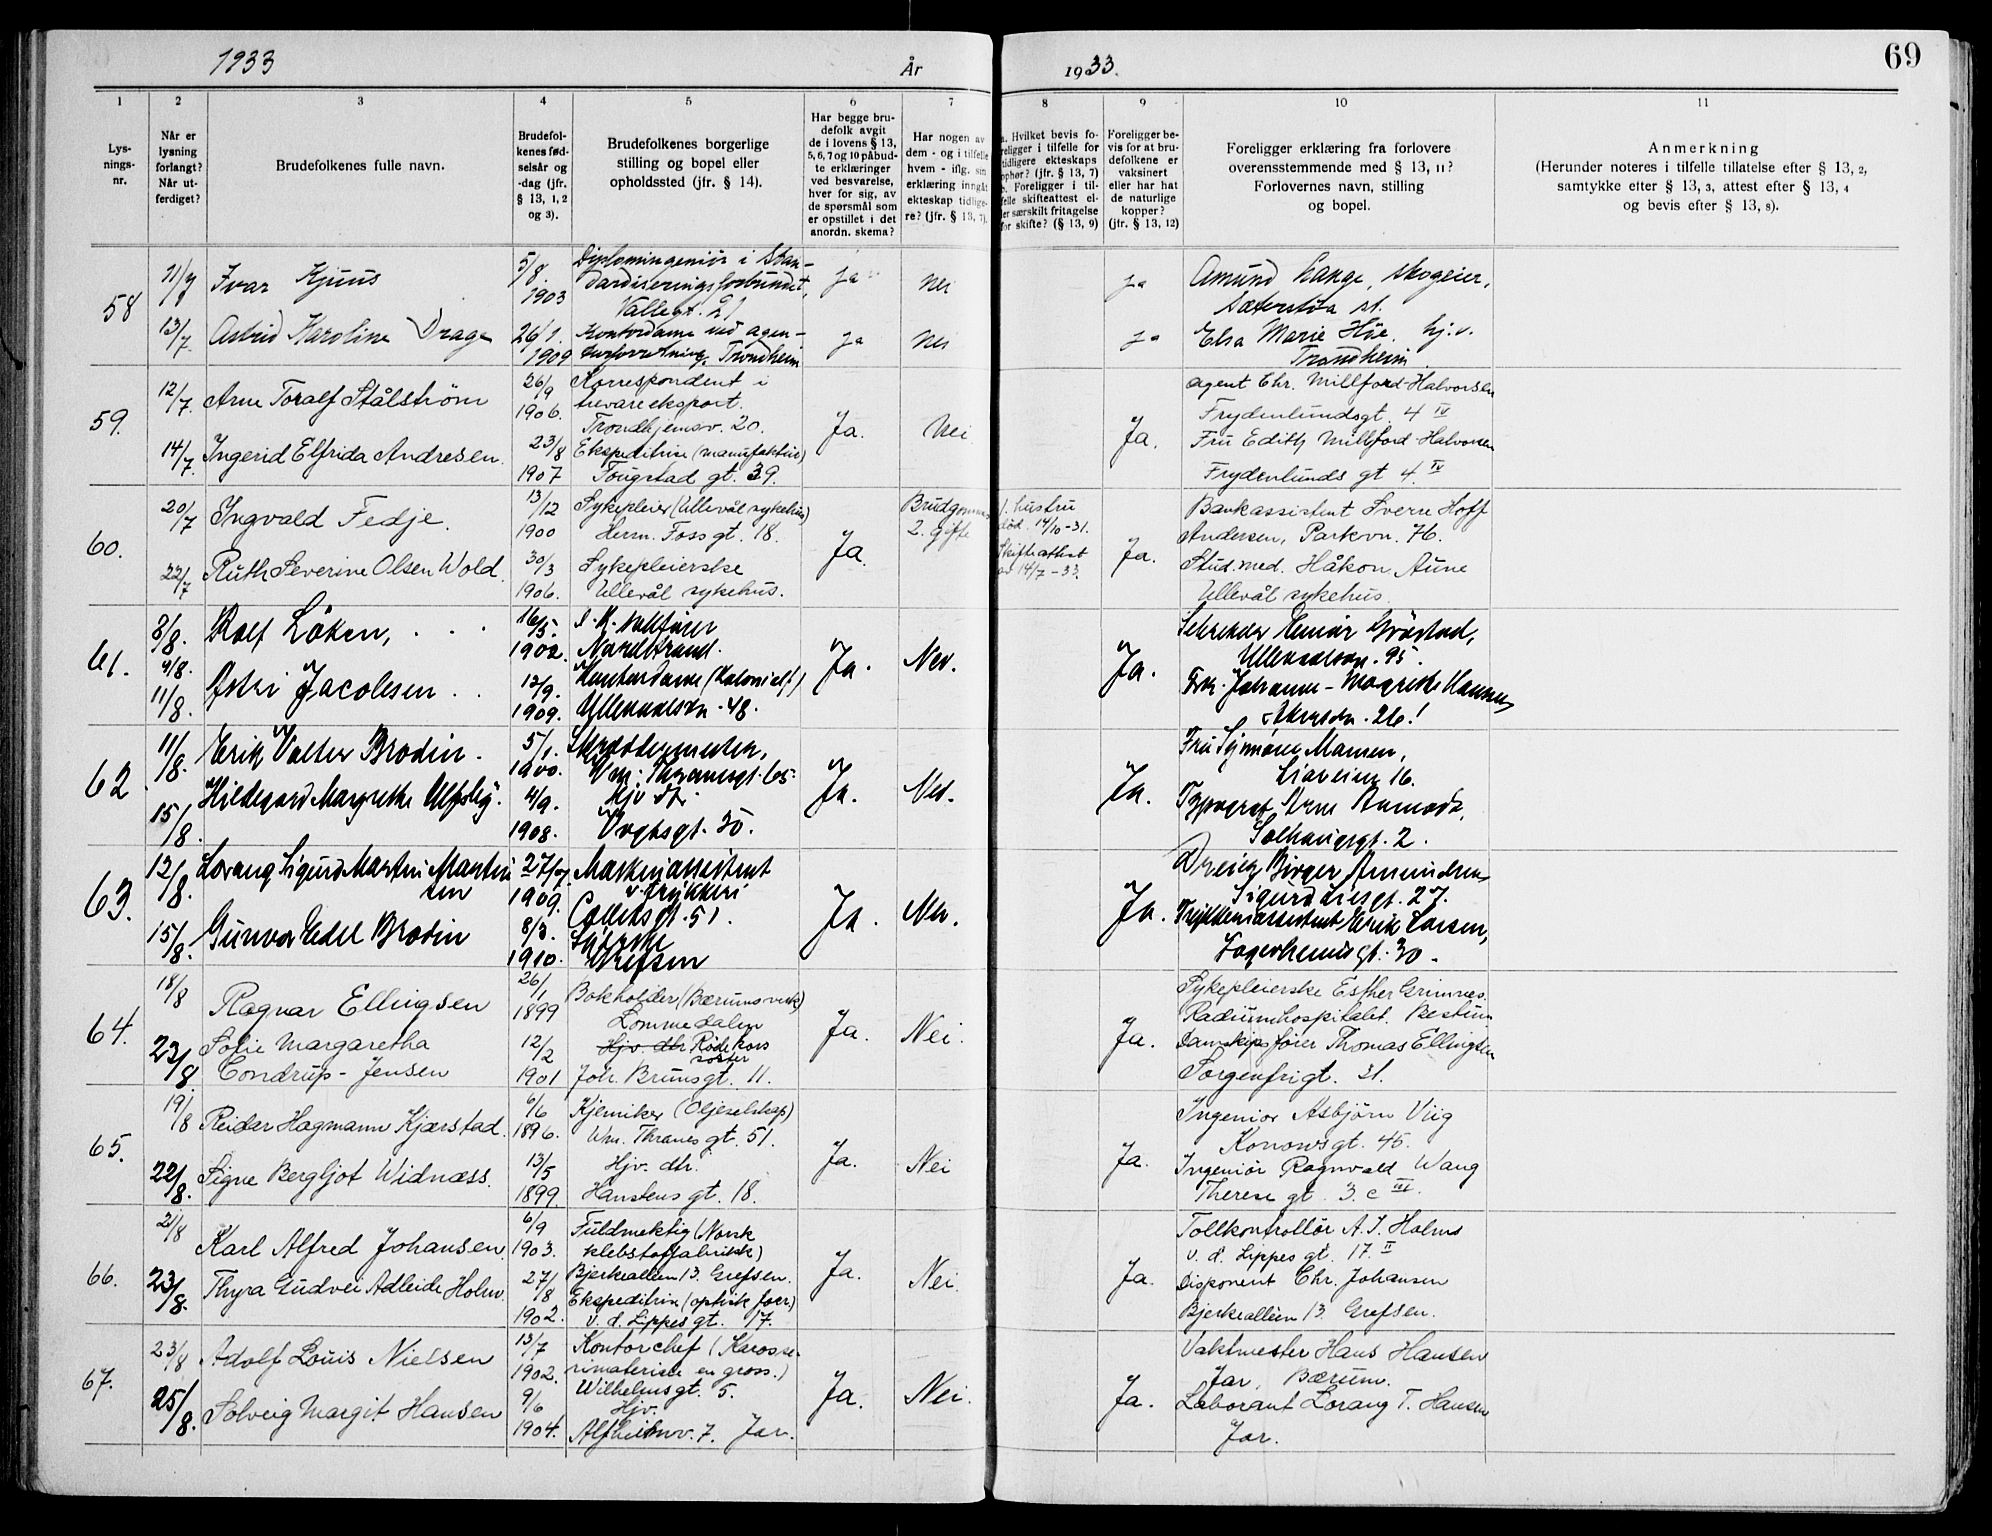 1933
År
1933.
69
1
2
3
4
5
6
7
8
9
10
11
Lys-
nings-
nr.
Når er
lysning
forlangt?
Når ut-
ferdiget?
Brudefolkenes fulle navn.
Brudefol-
kenes fød-
selsår og
-dag (jfr.
§ 13, 1, 2
og 3).
Brudefolkenes borgerlige
stilling og bopel eller
opholdssted (jfr. § 14).
Har begge bru-
defolk avgit
de i lovens § 13,
5, 6, 7 og 10 påbud-
te erklæringer
ved besvarelse,
hver for sig, av
de spørsmål som
er opstillet i det
anordn. skema?
Har nogen av
dem - og i tilfelle
hvem - iflg. sin
erklæring inngått
ekteskap tidlige-
re? (jfr. § 13, 7).
a. Hvilket bevis fo-
religger i tilfelle for
tidligere ekteskaps
ophør? (jfr. § 13, 7)
b. Foreligger i til-
felle skifteattest el-
ler særskilt fritagelse
for skifte? (§ 13, 9)
Foreligger be-
vis for at bru-
defolkene er
vaksinert
eller har hat
de naturlige
kopper?
(jfr. § 13, 12)
Foreligger erklæring fra forlovere
overensstemmende med § 13, 11?
Forlovernes navn, stilling
og bopel.
Anmerkning
(Herunder noteres i tilfelle tillatelse efter § 13, 2,
samtykke efter § 13, 3, attest efter § 13, 4
og bevis efter § 13, 8).
58
11/7
Ivar Kjuus
5/8.
1903
Diplomingeniør i Stan-
dardiseringsforbundet,
Vallegt. 21
ja
nei
ja
Amund Lange, skogeier,
Sæterstøa st.
13/7.
Astrid Karoline Drage
26/1.
1909
Kontordame ved agen-
turforretning, Trondheim
ja
nei
ja
Elsa Marie Høe, hj.v.
Trondheim
59.
12/7.
Arne Toralf Stålstrøm
26/9
1906.
Korrespondent i
trevareeksport.
Trondhjemsv. 20.
Ja.
Nei
Ja.
Agent Chr. Millford-Halvorsen
Frydenlundsgt. 4 IV
14/7.
Ingerid Elfrida Andresen.
23/8
1907
Ekspeditrise (manufaktur)
Tougstad gt. 39.
Fru Edith Millford-Halvorsen
Frydenlunds gt 4. IV
60.
20/7
Ingvald Fedje.
13/12
1900
Sykepleier (Ullevål sykehus)
Herm. Foss gt. 18.
Ja.
Brudgommen
2. gifte
1. hustru
død. 14/10-31.
Skifteattest
av 14/7-33.
Ja.
Bankassistent Sverre Hoff
Andersen, Parkvn. 76.
22/7
Ruth Severine Olsen Wold.
30/3
1906.
Sykepleierske
Ullevål sykehus.
Stud. med. Håkon Aune
Ullevål sykehus.
61.
8/8.
Rolf Løken,
16/5.
1902.
Nordstrand.
Ja.
Nei.
Ja.
Ullevaalsvn. 95.
4/8.
11/8.
Østri Jacobsen
12/9.
1909.
Kontordame (Kolonialf.)
Ullevaalsvn. 48.
Frk. Johanne-Magrethe Hansen,
Akersvn. 26!
62
11/8.
Erik Valter Brodin.
5/1.
1900.
Skreddermester,
Wm. Thranesgt. 65.
Ja.
Nei.
Ja.
Fru Signora Mansen,
Liaveien 16.
15/8.
Hildegard Margrethe Ulfsby.
4/9.
1908.
Hjv. dtr.
Vogtsgt. 30.
Typograf Arne Aamodt,
Solhauggt. 2.
63.
12/8.
Lorang Sigurd Martin Martin
sen
27/7.
1909.
Maskinassistent
v. trykkeri
Colletts gt. 51.
Ja.
Nei.
Ja.
Dreier Birger Amundsen
Sigurd Liesgt. 27.
15/8.
Gunvor Edel Brodin
8/3.
1910.
Syerske
Grefsen
Trykkeriassistent Erik Larsen,
Fagerheimsgt. 30.
64.
18/8
Ragnar Ellingsen
26/1
1899
Bokholder (Bærums verk)
Lommedalen
Ja.
Nei.
Ja.
Sykepleierske Esther Grimnes.
Radiumhospitalet. Bestum
23/8.
Sofie Margaretha
Condrup-Jensen
12/2
1901
Hjv. dtr Røde kors
søster
Joh. Bruns gt. 11.
Damskipsfører Thomas Ellingsen
Sorgenfrigt. 31.
65.
19/8
Reidar Hagmann Kjærstad.
6/6
1896.
Kjemiker (Oljeselskap)
Wm. Thranes gt. 51.
Ja.
Nei
Ja.
Ingeniør Asbjørn Viig
Konowsgt. 45.
22/8.
Signe Bergljot Widnæss.
13/5
1899.
Hjv. dtr.
Hanstens gt. 18.
Ingeniør Ragnvald Wang
Therese gt. 3. c III.
66.
21/8
Karl Alfred Johansen
6/9
1903.
Fuldmektig (Norsk
klebstoffabrikk)
Bjerkealleen 13. Grefsen.
Ja.
Nei.
Ja.
Tollkontrollør A. J. Holms
v. d. Lippes gt. 17. II
23/8.
Thyra Gudvei Adleide Holm
27/8
1902.
Ekspeditrise (optisk forr.)
v. d. Lippes gt. 17.
Disponent Chr. Johansen
Bjerkealleen 13. Grefsen.
67.
23/8
Adolf Louis Nielsen
13/7
1902.
Kontorchef (Karosse-
rimateriell en gross.)
Wilhelmsgt. 5.
Ja.
Nei.
Ja.
Vaktmester Hans Hansen
Jar, Bærum.
25/8.
Solveig Margit Hansen
9/6
1904.
Hjv.
Alfheimv. 7. Jar.
Laborant Lorang T. Hansen
Jar.